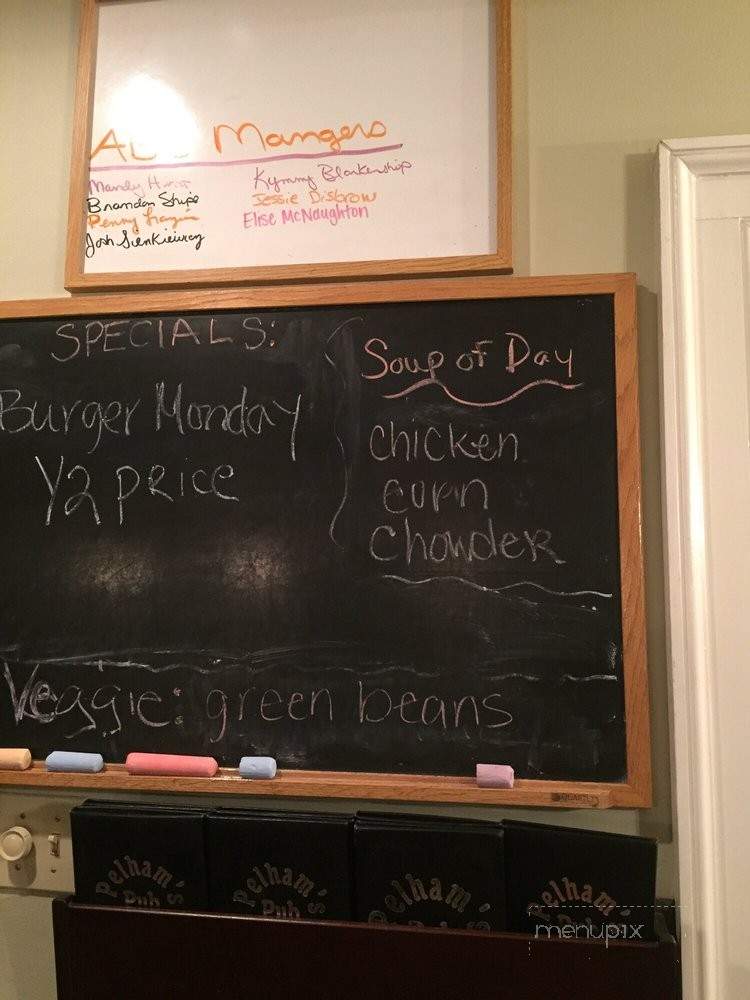 Mangers
Mandy
Brandon Shipe
Penny
Josh Sienkiewicz
Kymmy Blankenship
Jessie Disbrow
Elise McNaughton
SPECIALS:
Burger Monday
1/2 PRICE
Soup of Day
chicken
corn
chowder
Veggie: green beans
Pelham's
Pub
Pelham's
Pub
Pelham's
Pelham's
menupix